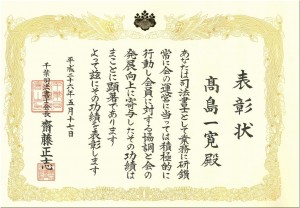 表彰状
高島一寛殿
あなたは司法書士として業務に研鑽
常に会の運営に当っては積極的に
行動し会員に対する協調と会の
発展向上に寄与したその功績は
まことに顕著であります
よって茲にその功績を表彰します
平成二十六年五月十七日
千葉司法書士会会長 齋藤正志